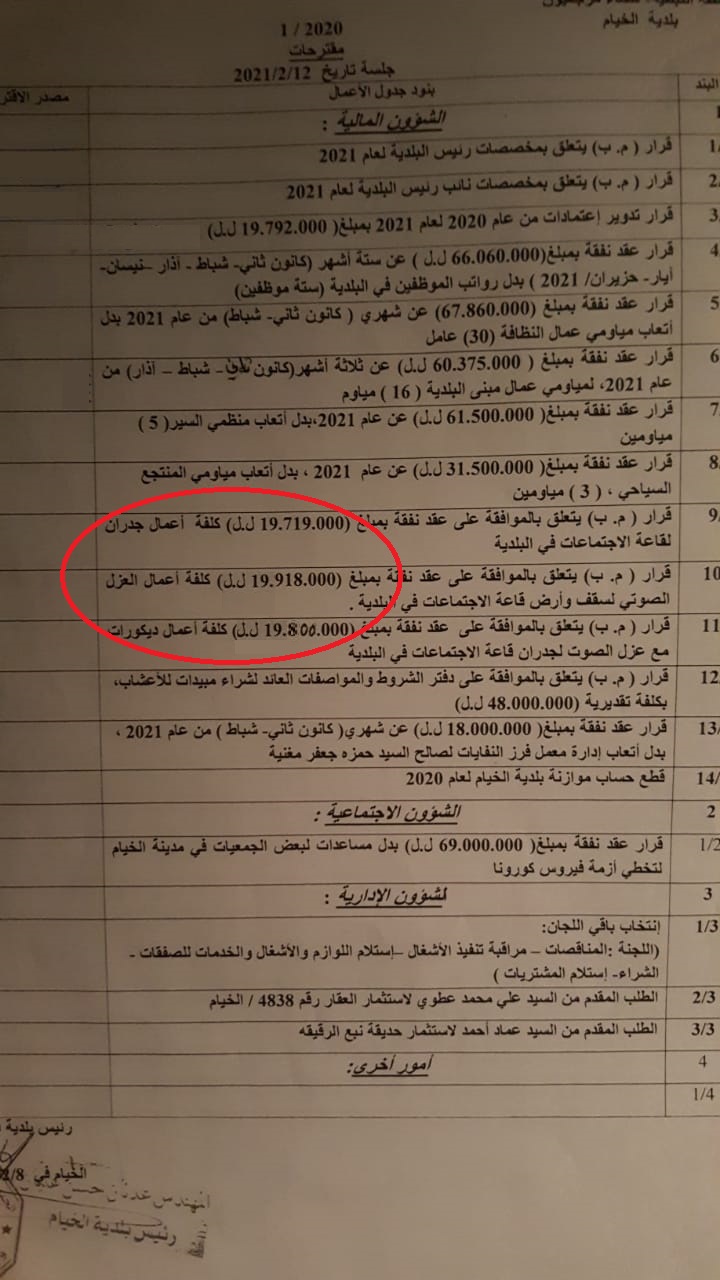 بلدية الخيام
1 / 2020
مقترحات
جلسة تاريخ 2021/2/12
البند
بنود جدول الأعمال
مصدر الاقتر
الشؤون المالية :
1/
قرار ( م. ب) يتعلق بمخصصات رئيس البلدية لعام 2021
2.
قرار ( م. ب) يتعلق بمخصصات نائب رئيس البلدية لعام 2021
3.
قرار تدوير إعتمادات من عام 2020 لعام 2021 بمبلغ( 19.792.000 ل.ل)
4
قرار عقد نفقة بمبلغ(66.060.000 ل.ل ) عن ستة أشهر (كانون ثاني- شباط - آذار –نيسان-
أيار- حزيران/ 2021 ) بدل رواتب الموظفين في البلدية (ستة موظفين)
5
قرار عقد نفقة بمبلغ (67.860.000) عن شهري ( كانون ثاني- شباط) من عام 2021 بدل
أتعاب مياومي عمال النظافة (30) عامل
6
قرار عقد نفقة بمبلغ ( 60.375.000 ل.ل) عن ثلاثة أشهر(كانون ثاني- شباط – آذار) من
عام 2021، لمياومي عمال مبنى البلدية ( 16 ) مياوم
7.
قرار عقد نفقة بمبلغ( 61.500.000 ل.ل) عن عام 2021،بدل أتعاب منظمي السير( 5 )
مياومين
8.
قرار عقد نفقة بمبلغ( 31.500.000 ل.ل) عن عام 2021 ، بدل أتعاب مياومي المنتجع
السياحي ، ( 3 ) مياومين
9.
قرار ( م. ب) يتعلق بالموافقة على عقد نفقة بمبلغ (19.719.000 ل.ل) كلفة أعمال جدران
لقاعة الاجتماعات في البلدية
10
قرار ( م. ب) يتعلق بالموافقة على عقد نفقة بمبلغ (19.918.000 ل.ل) كلفة أعمال العزل
الصوتي لسقف وأرض قاعة الاجتماعات في البلدية .
11
قرار ( م. ب) يتعلق بالموافقة على عقد نفقة بمبلغ (19.800.000 ل.ل) كلفة أعمال ديكورات
مع عزل الصوت لجدران قاعة الاجتماعات في البلدية
12.
قرار ( م. ب) يتعلق بالموافقة على دفتر الشروط والمواصفات العائد لشراء مبيدات للأعشاب،
بكلفة تقديرية (48.000.000 ل.ل)
13/
قرار عقد نفقة بمبلغ( 18.000.000 ل.ل) عن شهري( كانون ثاني- شباط ) من عام 2021 ،
بدل أتعاب إدارة معمل فرز النفايات لصالح السيد حمزه جعفر مغنية
14/
قطع حساب موازنة بلدية الخيام لعام 2020
2
الشؤون الاجتماعية :
1/2
قرار عقد نفقة بمبلغ( 69.000.000 ل.ل) بدل مساعدات لبعض الجمعيات في مدينة الخيام
لتخطي أزمة فيروس كورونا
3
لشؤون الإدارية :
1/3
إنتخاب باقي اللجان:
(اللجنة :المناقصات – مراقبة تنفيذ الأشغال –إستلام اللوازم والأشغال والخدمات للصفقات -
الشراء- إستلام المشتريات )
2/3
الطلب المقدم من السيد علي محمد عطوي لاستثمار العقار رقم 4838 / الخيام
3/3
الطلب المقدم من السيد عماد أحمد لاستثمار حديقة نبع الرقيقه
4
أمور أخرى:
1/4
رئيس بلدية
الخيام في 2/8
المهندس عدنان حسن
رئيس بلدية الخيام